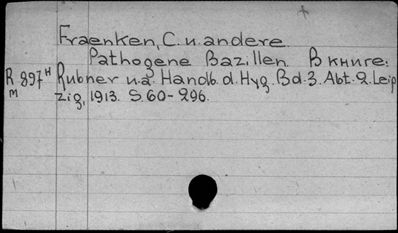 Fraenken, C. u. andere.
Pathogene Bazillen. В книге:
R 897ᴴ Rubner u.a. Handb. d. Hyg. Bd. 3. Abt. 2. Leip
M zig, 1913. S. 60-296.